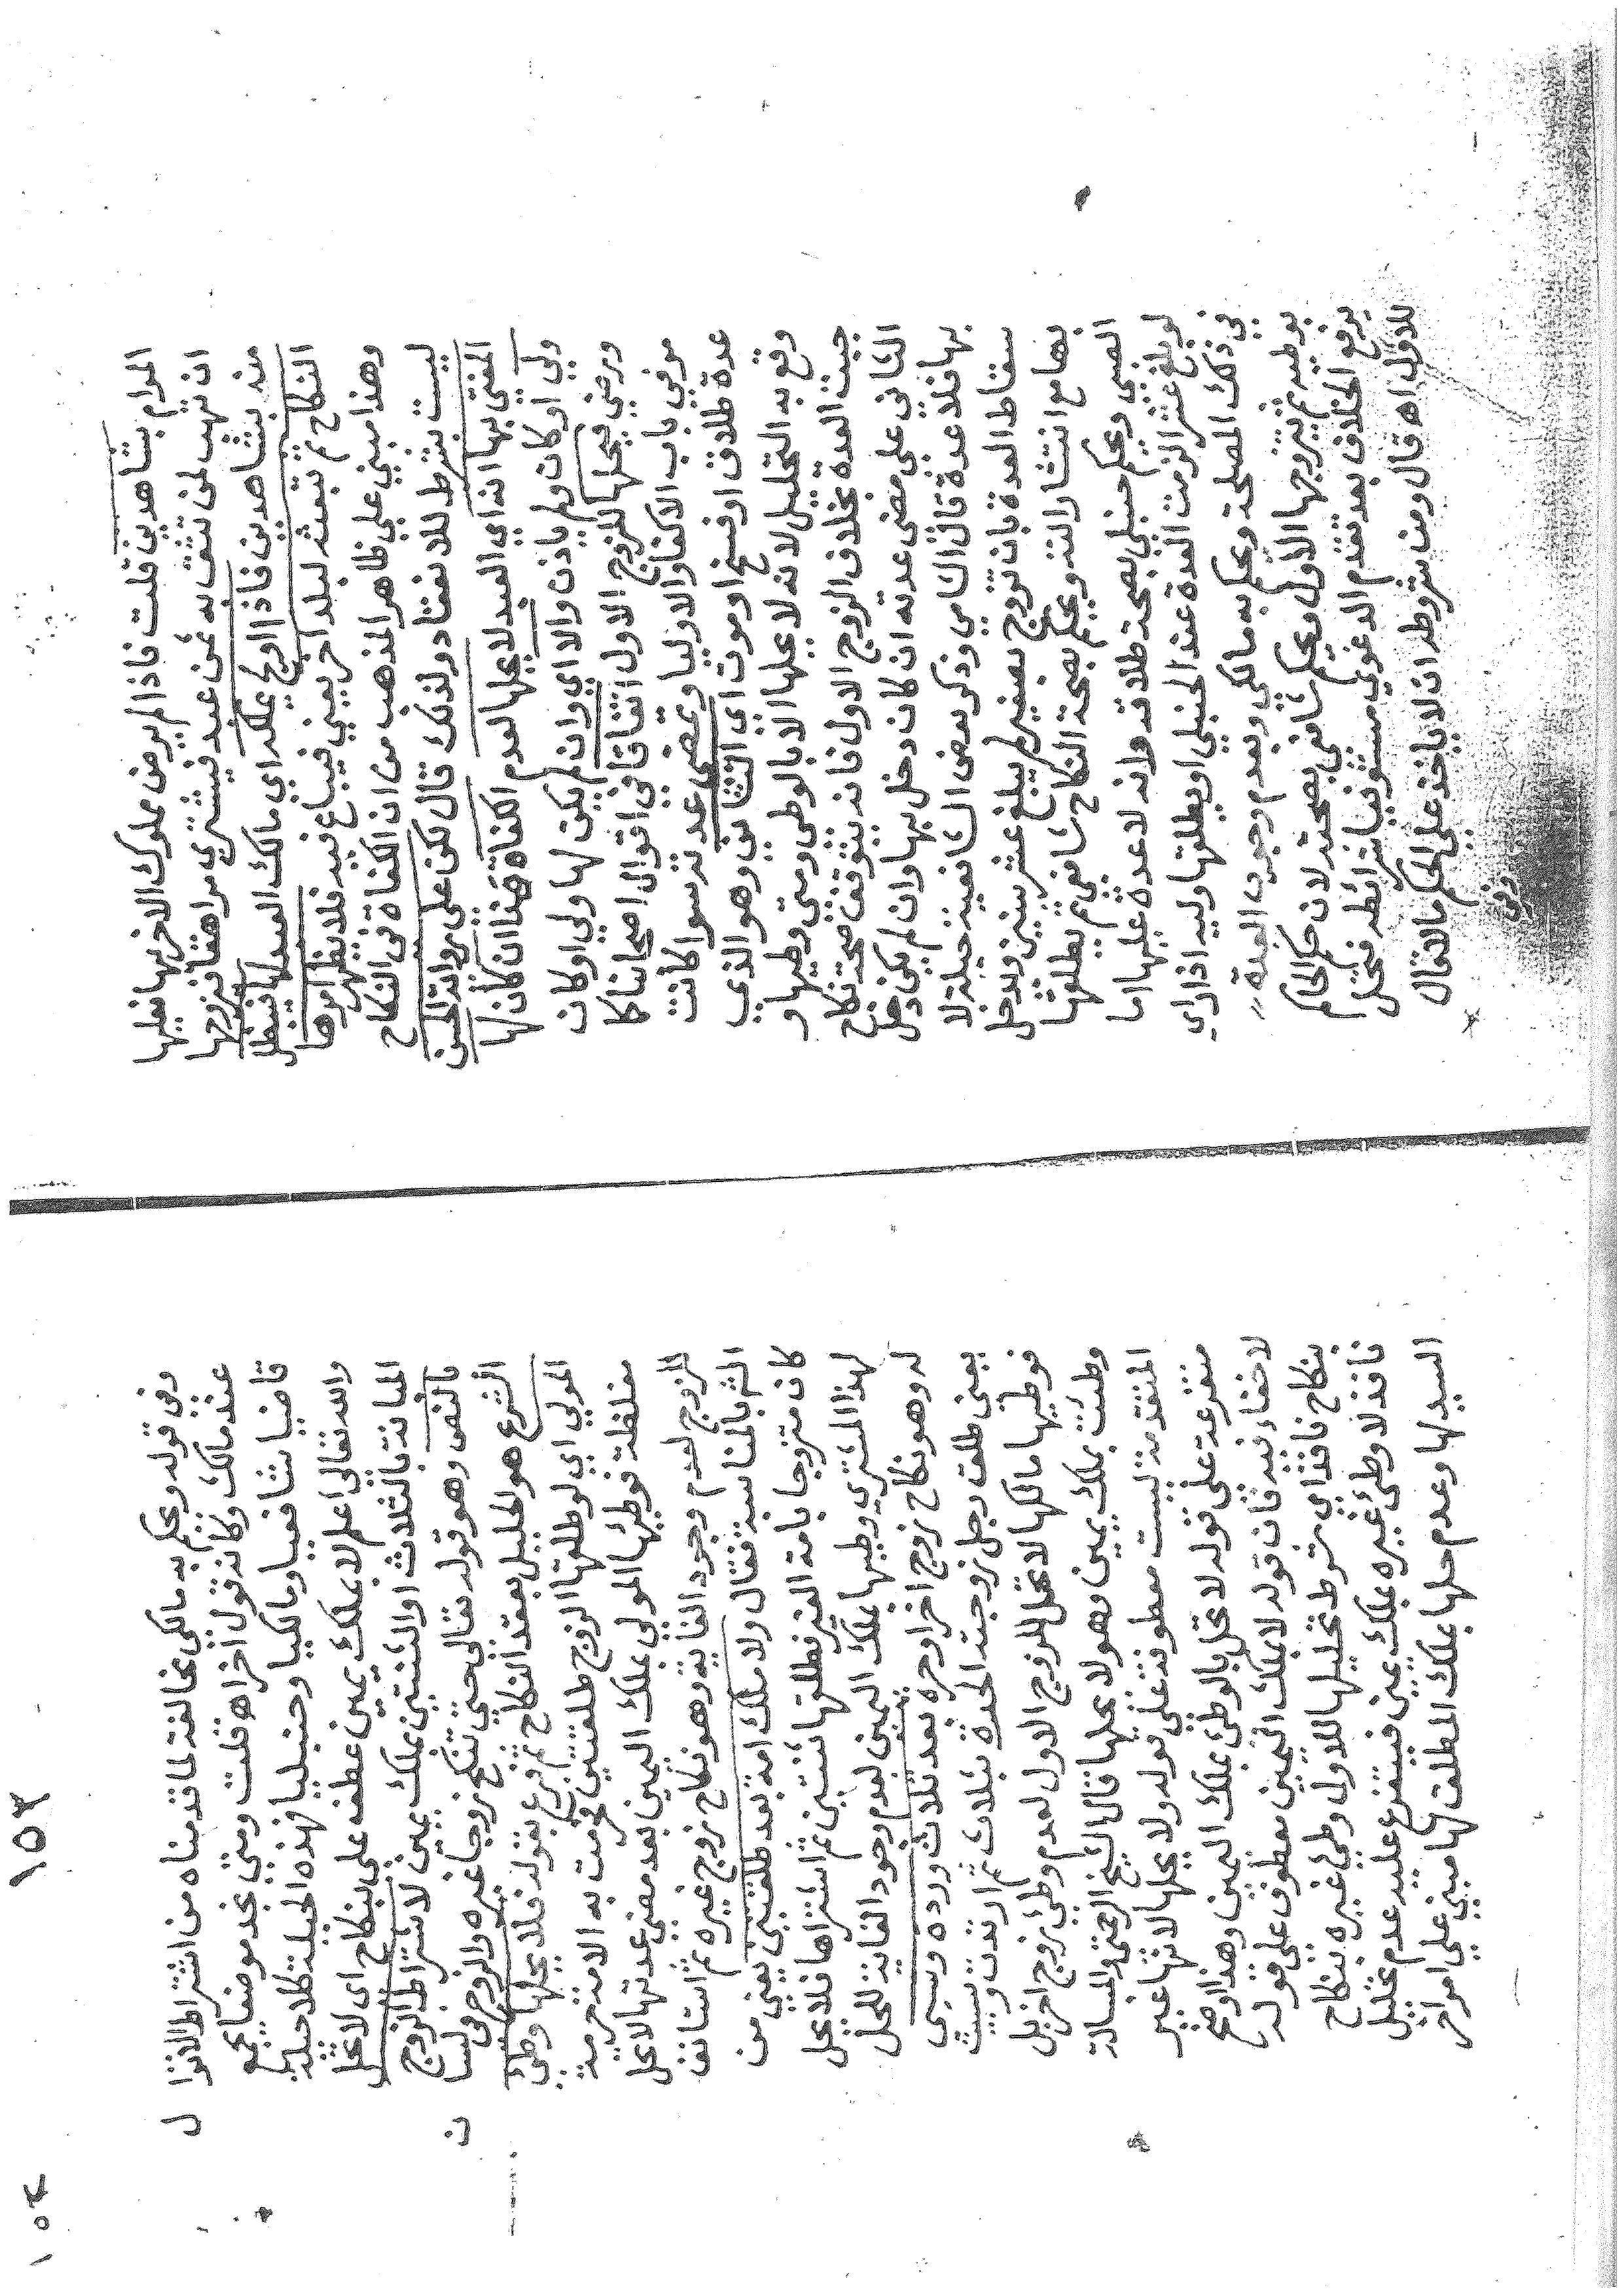 المرام بشاهدين قلت فاذا لم يرض مملوك الاخر بها فعليها
ان تهب لمن تثق به ثمن عبد فيشتري مراهقا يزوجها
منه بشاهدين فاذا اولج يملكه اي مالك العبد لها فيبطل
النكاح ثم تبعثه لبلد اخر يعني فيباع فيه فلا يظهر امرها
وهذا مبني علي ظاهر المذهب من ان الكفاة في النكاح
ليست بشرط للانعقاد ولذلك قال لكن علي رواية الحسن
المفتي بها انه اي العبد لا يحلها لعدم الكفاة هذا ان كان لها
ولي او كان ولم ياذن والا اي وان لم يكن لها ولي او كان
ورضي فيحلها للزوج الاول اتفاقا في اقوال اصحابنا كما
مر في باب الاكفاء والاوليا وتمضي عدته سوا كانت
عدة طلاق او فسخ او موت اي الثاني وهو الذي
وقع به التحليل لانه لا يحلها الا بالوطي ومتي وطيها و
جبت العدة بخلاف الزوج الاول فانه يتوقف صحة نكاح
الثاني علي مضي عدته ان كان دخل بها وان لم يكن دخل
بها فلا عدة قال الشامي وذكر بعض الشافعية حيلة لا
سقاط العدة بان تزوج بصغير لم يبلغ عشر سنين ويدخل
بها مع انتشار الته ويحكم بصحة النكاح شافعي ثم يطلقها
الصبي ويحكم حنبلي بصحة طلاقه وانه لا عدة عليها اما
لو بلغ عشرا لزمت العدة عند الحنبلي او يطلقها وليه اذا راي
في ذلك المصلحة ويحكم به مالكي وبعدم وجوب العدة
بوطيه ثم يتزوجها الاول ويحكم شافعي بصحته لان حكم الحاكم
يرفع الخلاف بعد تقدم الدعوي مستوفيا شرائطه فتحل
للاول اه قال ومن شروطه ان لا ياخذ علي الحكم مالا قال
وفي
١٥٣
وفي قوله ويحكم به مالكي مخالفة لما قدمناه من اشتراط الانزا ل
عند مالك وكانه قول اخر اه قلت ومتي نجد موضعا يجمع
قاضيا شافعيا ومالكيا وحنبليا فهذه الحيلة كلا حيلة
والله تعالي اعلم لا بملك يمين عطفه علي بنكاح اي لا تحل
المبانة بالثلاث او الثنتين بملك يمين لاشتراط الزوج
بالنص وهو قوله تعالي حتي تنكح زوجا غيره والزوج في ليسا ن
الشرع هو الحليل بعقد النكاح ثم فرع بقوله فلا يحلها وطئ
المولي اي لو طلقها الزوج طلقتين حرمت به الامة حرمة
مغلظة فوطئها المولي بملك اليمين بعد مضي عدتها لا تحل
للزوج لعدم وجود الغاية وهو نكاح زوج غيره ثم استانف
الشرح بالمناسبة فقال ولا ملك امة بعد طلقتين يعني من
كان متزوجا بامة الغير فطلقها ثنتين ثم اشتراها فلا يحل
لهذا المشتري وطيها بملك اليمين لعدم وجود الغاية للحل
له وهو نكاح زوج اخر او حرة بعد ثلاث وردة وسبي
يعني طلق رجل زوجته الحرة بثلاث ثم ارتدت وسبيت
فوطيها مالكها لا تحل للزوج الاول لعدم وطئ زوج اخر بل
وطئت بملك يمين وهو لا يحلها قال الشيخ الرحمتي والمسالة
المتقدمة ليست معطوفة علي قوله ولا يحلها لانها غير
متفرعة علي قوله لا تحل بالوطئ بملك اليمين وهذا اوضح
لا خفاء فيه فان قوله لا بملك اليمين معطوف علي قوله
بنكاح نافذ اي شرط تحليلها للاول وطئ غيره بنكاح
نافذ لا وطئ غيره بملك يمين فيتفرع عليه عدم تحليل
السيد لها وعدم حلها بملك المطلق لها مبني علي امر اخر
١٥٤